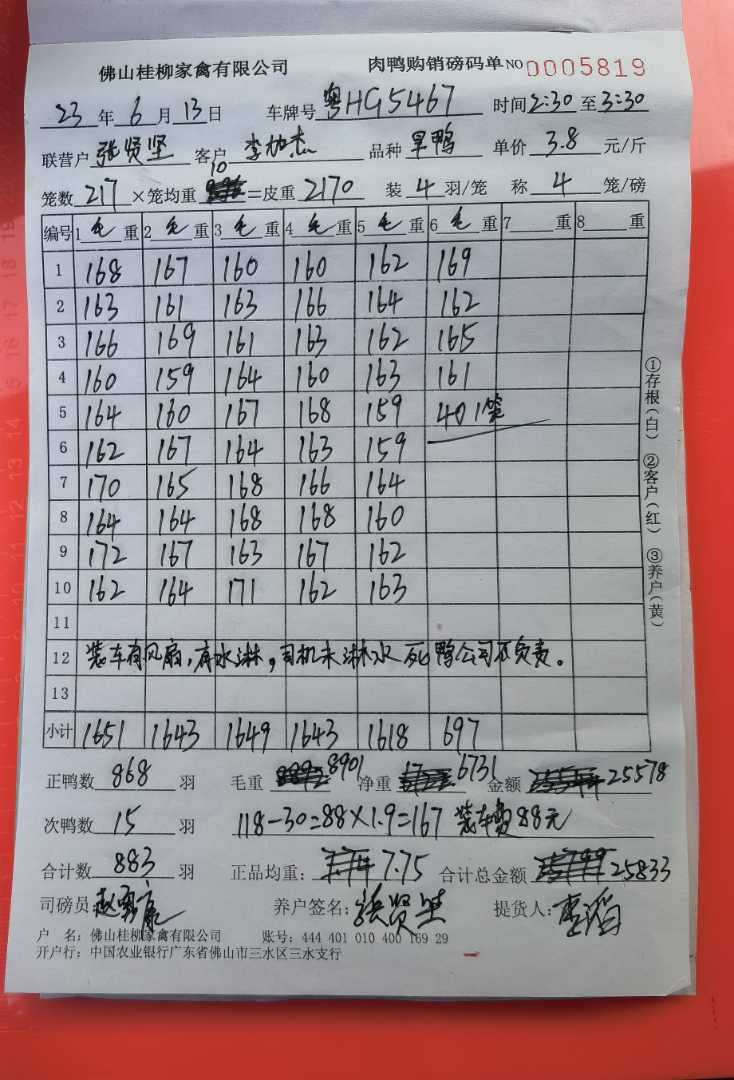 佛山桂柳家禽有限公司 肉鸭购销磅码单 NO 0005819
23 年 6 月 13 日 车牌号 粤HG5467 时间 2:30 至 3:30
联营户 张贤坚 客户 李加杰 品种 旱鸭 单价 3.8 元/斤
笼数 217 ×笼均重 10 =皮重 2170 装 4 羽/笼 称 4 笼/磅
编号 1 毛 重 2 毛 重 3 毛 重 4 毛 重 5 毛 重 6 毛 重 7 重 8 重
1 168 167 160 160 162 169
2 163 161 163 166 164 162
3 166 169 161 163 162 165
4 160 159 164 160 163 161
5 164 160 167 168 159 40 1笼
6 162 167 164 163 159
7 170 165 168 166 164
8 164 164 168 168 160
9 172 167 163 167 162
10 162 164 171 162 163
11
12 装车有风扇，有水淋，司机未淋水死鸭公司不负责。
13
小计 1651 1643 1649 1643 1618 697
正鸭数 868 羽 毛重 8901 净重 6731 金额 25578
次鸭数 15 羽 118-30=88×1.9=167 装车费88元
合计数 883 羽 正品均重: 7.75 合计总金额 25833
司磅员: 养户签名: 张贤坚 提货人:
户 名: 佛山桂柳家禽有限公司 账号: 444 401 010 400 169 29
开户行: 中国农业银行广东省佛山市三水区三水支行
①存根(白) ②客户(红) ③养户(黄)